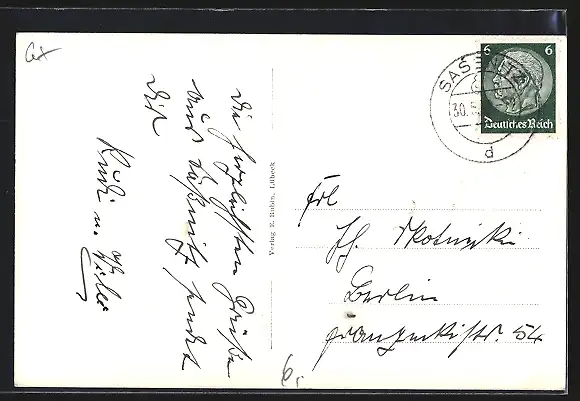 Die herzlichsten Grüße
aus Saßnitz sendet
Dir
Rudi u. Willi
Verlag E. Rubin, Lübeck
SASSNITZ
30.
d
6 6
Deutsches Reich
Frl
Berlin
54